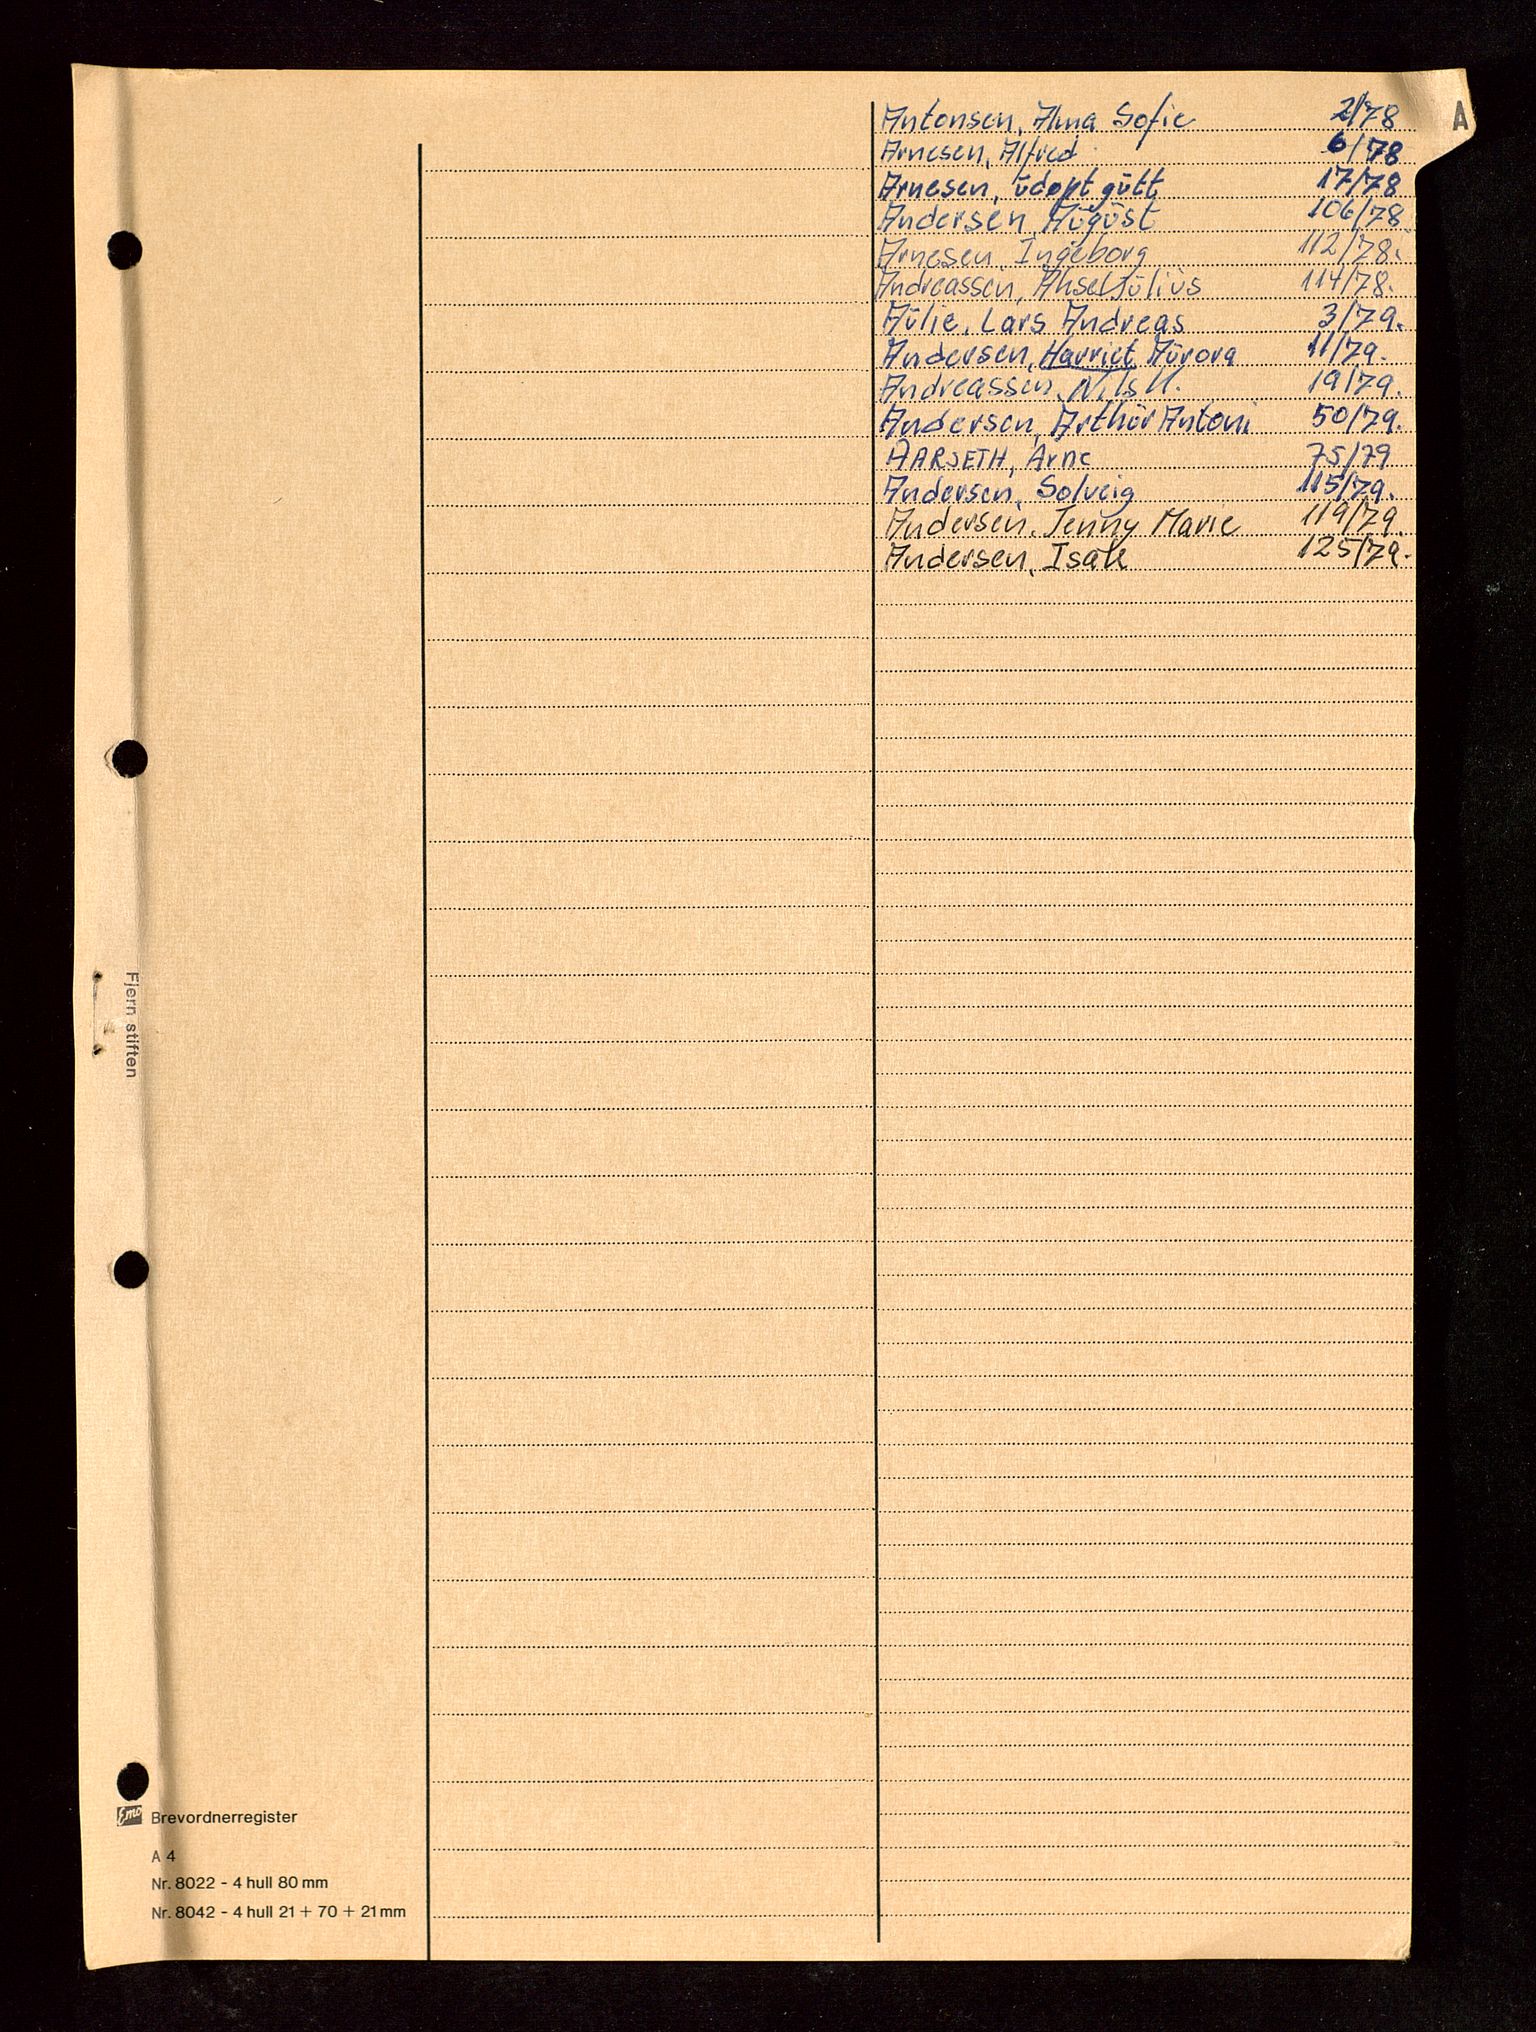 A
Antonsen, Alma Sofie 2/78
Arnesen, Alfred 6/78
Arnesen, udøpt gutt 17/78
Andersen, August 106/78
Arnesen, Ingeborg 112/78.
Andreassen, Aksel Julius 114/78.
Aulie, Lars Andreas 3/79.
Andersen, Harriet Aurora 11/79.
Andreassen, Nils K. 19/79.
Andersen, Arthur Antoni 50/79.
AARSETH, Arne 75/79
Andersen, Solveig 115/79.
Andersen, Jenny Marie 119/79.
Andersen, Isak 125/79.
Fjern stiften
Emo Brevordnerregister
A 4
Nr. 8022 - 4 hull 80 mm
Nr. 8042 - 4 hull 21 + 70 + 21 mm